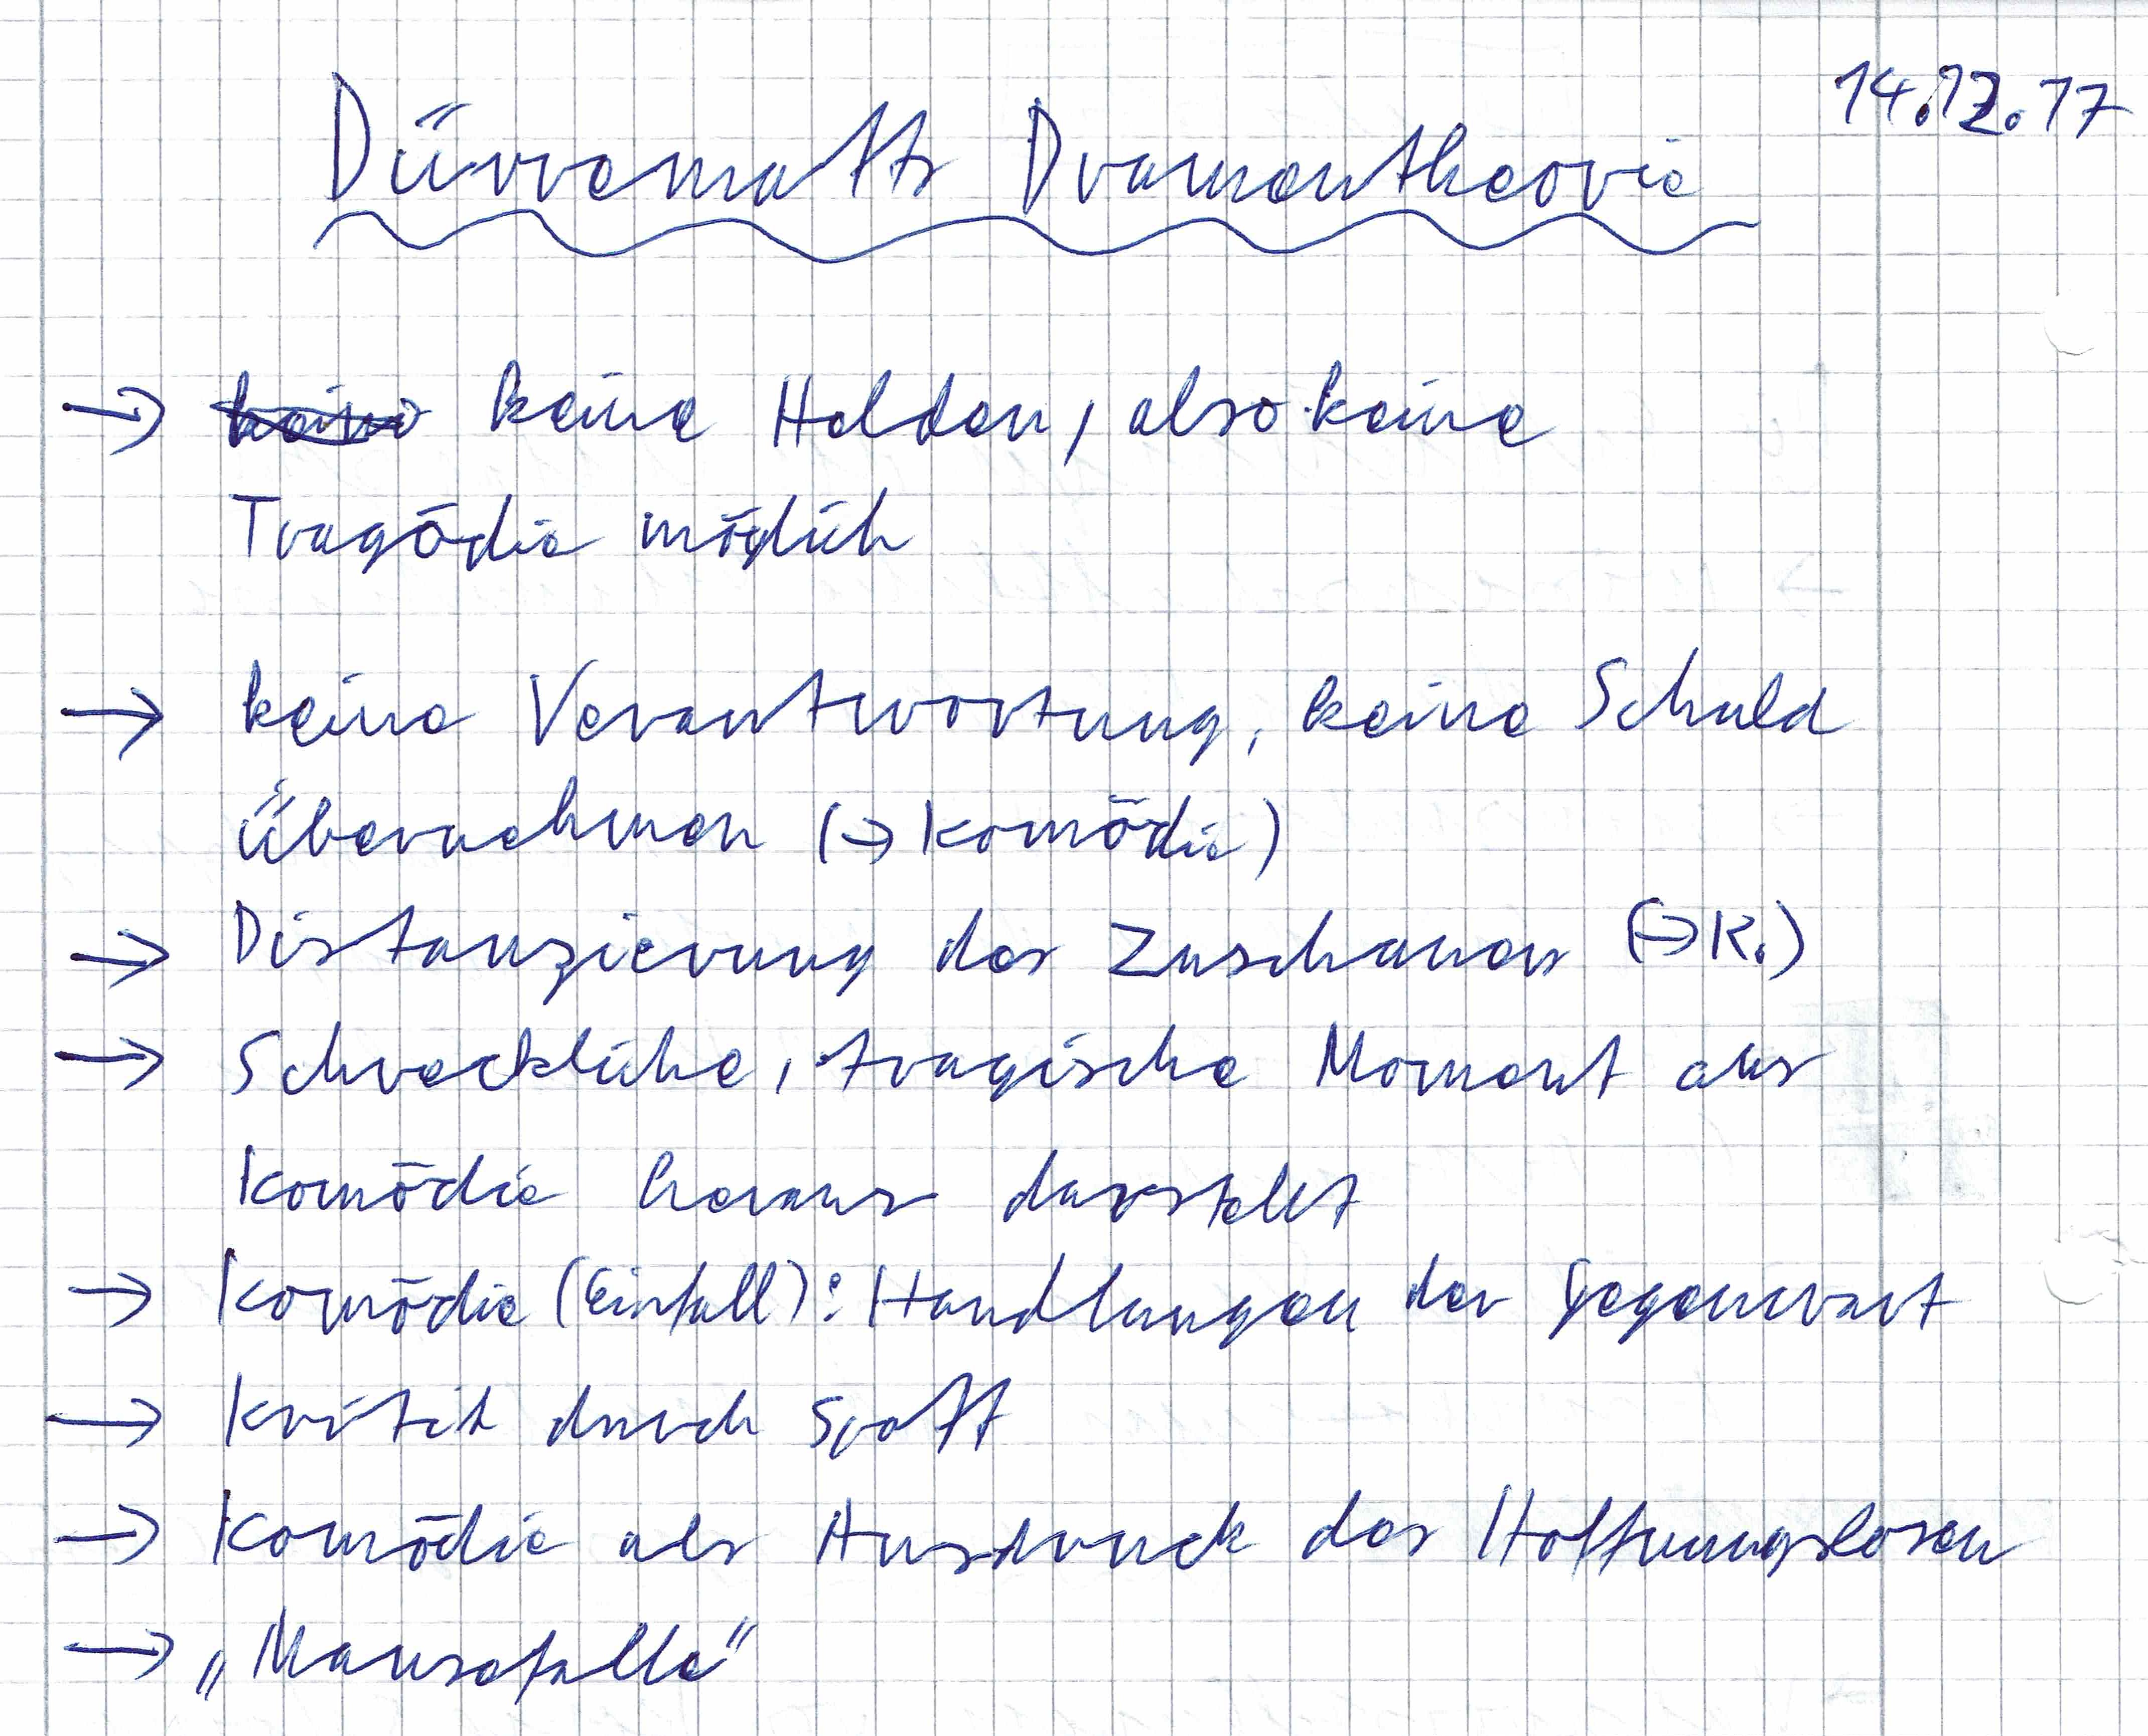 14.12.17
Dürrematts Dramentheorie
→ keine keine Helden, also keine
Tragödie möglich
→ keine Verantwortung, keine Schuld
übernehmen (→ Komödie)
→ Distanzierung des Zuschauers (→ K.)
→ Schreckliche, tragische Moment aus
Komödie heraus darstellt
→ Komödie (Einfall): Handlungen der Gegenwart
→ Kritik durch Spott
→ Komödie als Ausdruck des Hoffnungslosen
→ „Mausefalle“